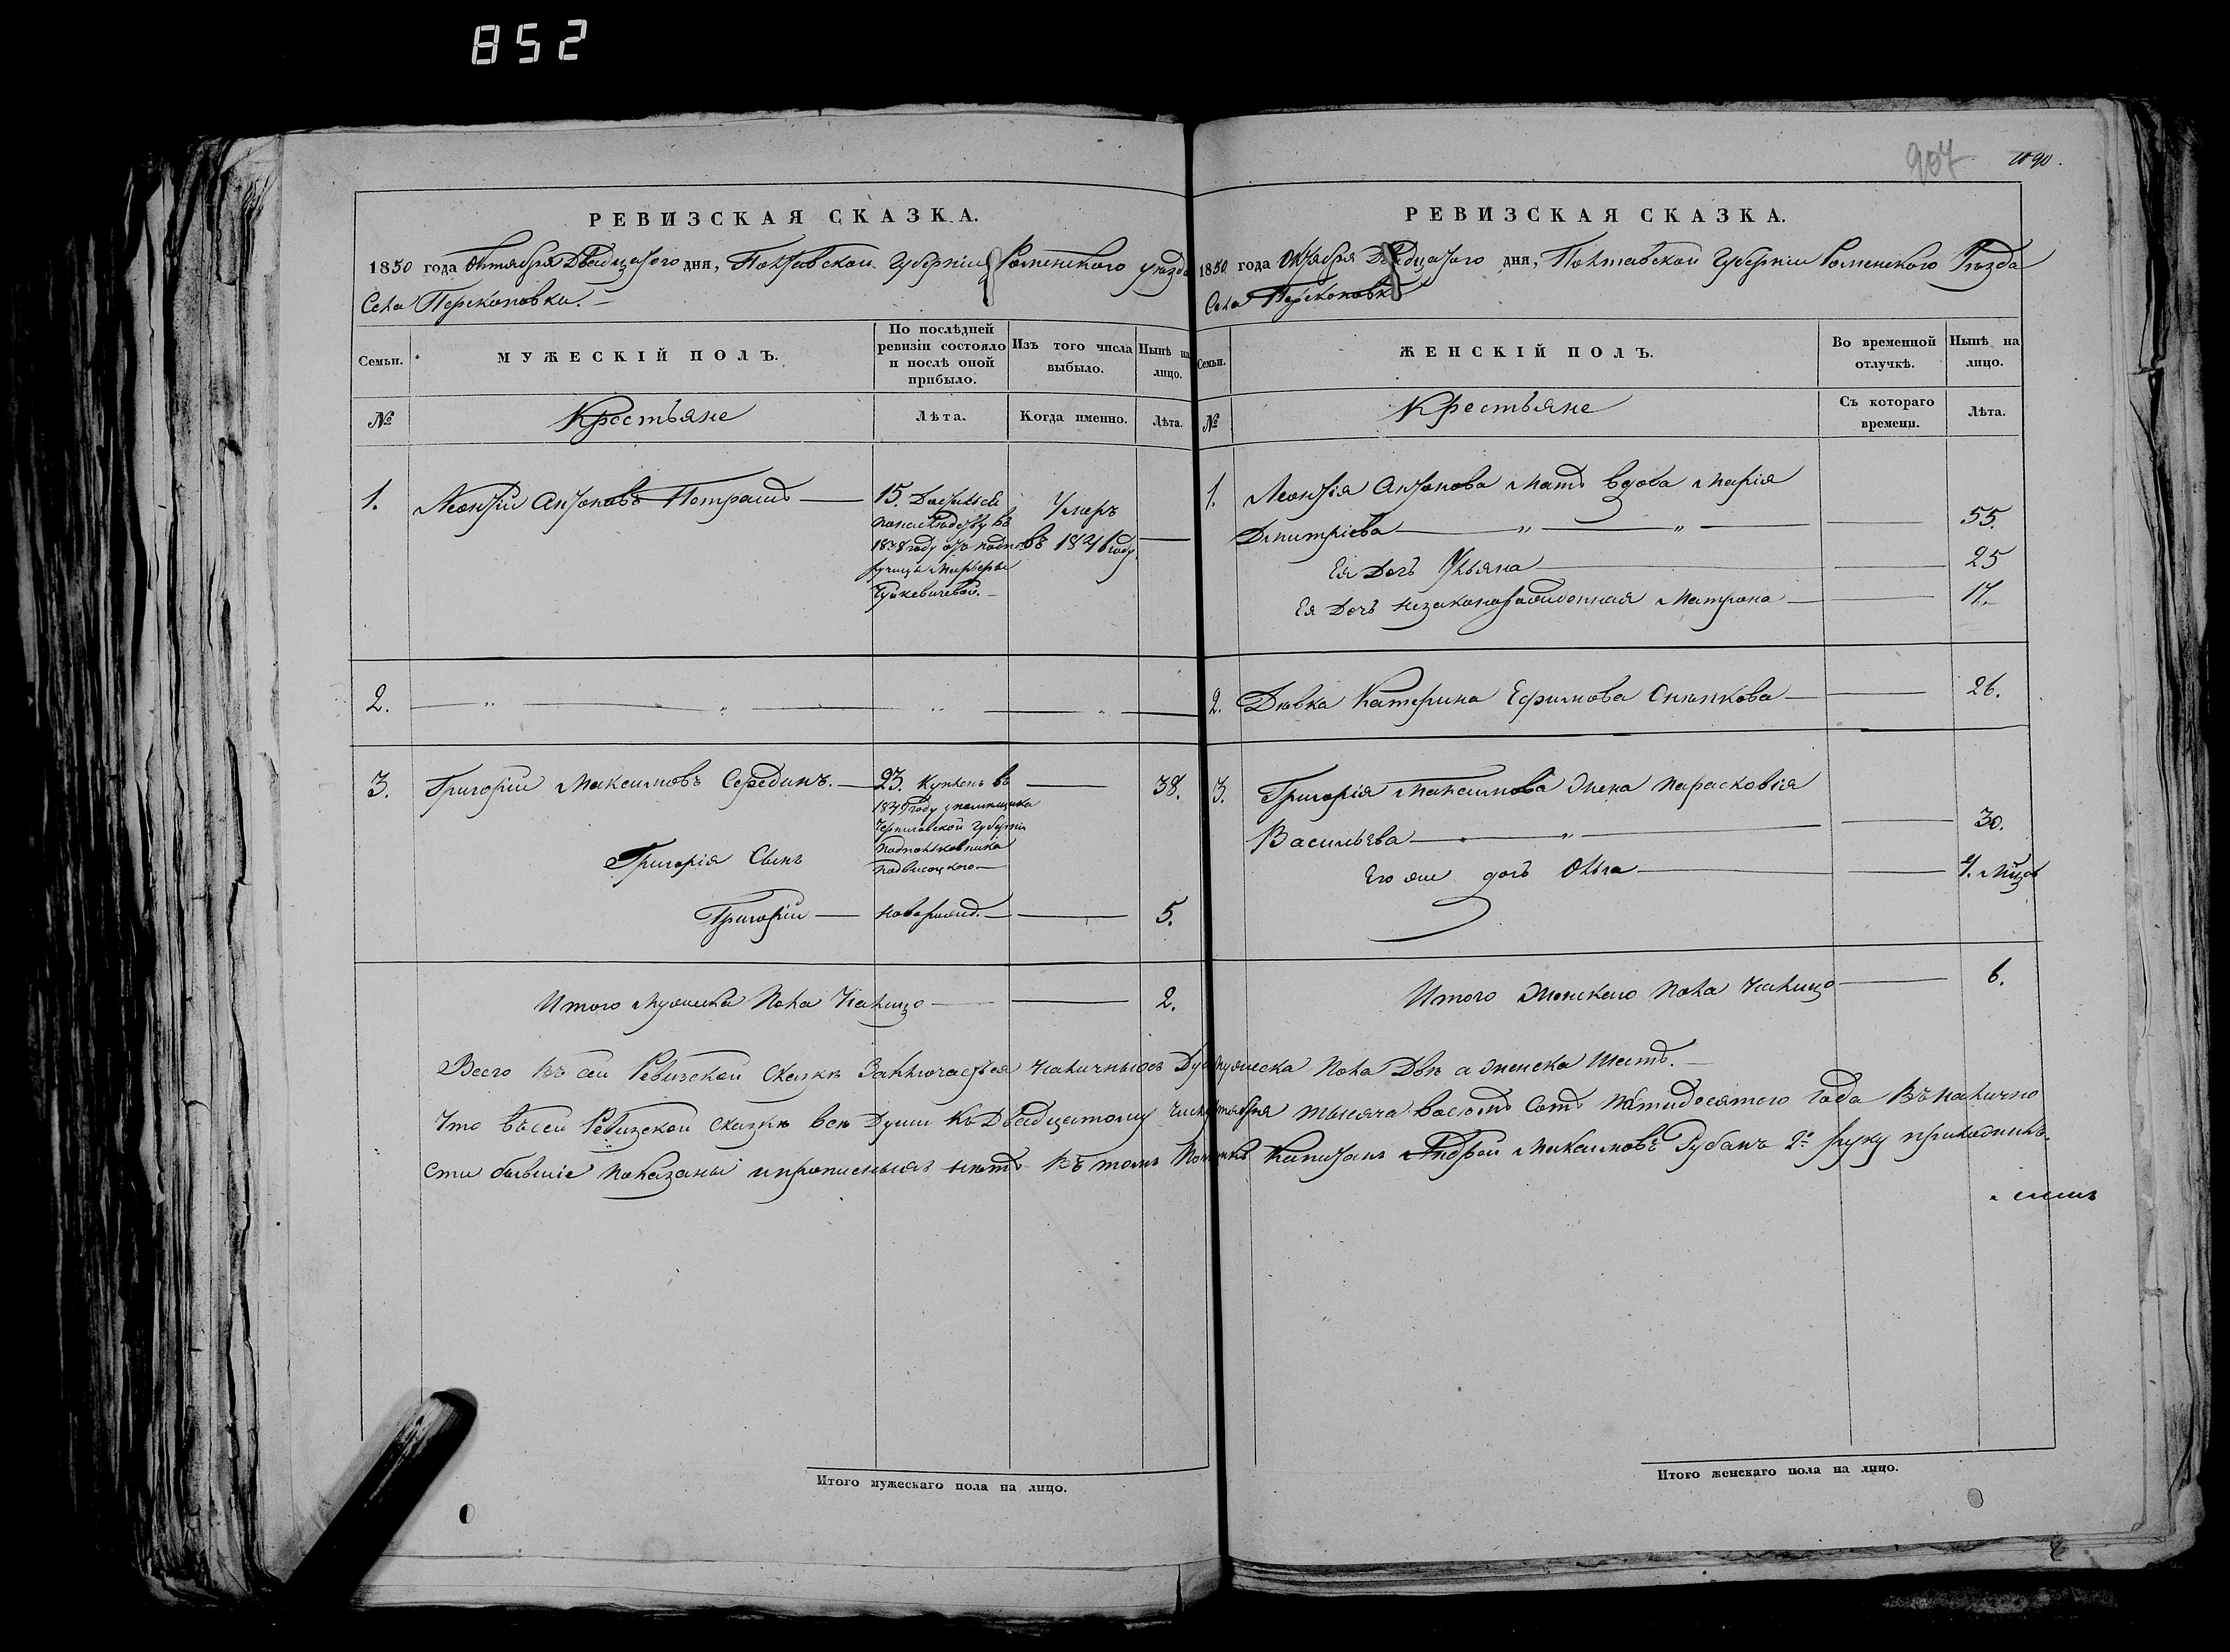 852
907
1090.
РЕВИЗСКАЯ СКАЗКА.
1850 года Октября Двадцатого дня, Полтавской Губерніи Роменского уѣзда
Села Перекоповки.
Семьи.
МУЖЕСКІЙ ПОЛЪ.
По послѣдней
ревизіи состояло
и послѣ оной
прибыло.
Изъ того числа
выбыло.
Нынѣ на
лицо.
№
Крестьяне
Лѣта.
Когда именно.
Лѣта.
1. Леонтій Антоновъ Петрашъ 15. Достался
по наслѣдству въ
1838 году отъ подпо
ручицы Марьеры
Гуйкевичевой.
Умеръ
въ 1841 году.
2.
3. Григорій Максимовъ Серединъ. 23. Купленъ въ 38.
году у помещика
Черниговской Губерніи
Подполковника
Подвисоцкого
Григорія Сынъ
Григорій новорожд. 5.
Итого Мужеска Пола Налицо 2.
РЕВИЗСКАЯ СКАЗКА.
1850 года Октября Двадцатого дня, Полтавской Губерніи Роменского Уѣзда
Села Перекоповки
Семьи.
ЖЕНСКІЙ ПОЛЪ.
Во временной
отлучкѣ.
Нынѣ на
лицо.
№
Крестьяне
Съ котораго
времени.
Лѣта.
1. Леонтія Антонова Мать вдова Марія
Дмитріева 55.
Ея Дочь Ульяна 25
Ея Дочь незаконорожденная Матрона 17.
2. Дѣвка Катерина Ефимова 26.
3. Григорія Максимова Жена Парасковія
Васильева 30.
Его же дочь Ольга 4. Мѣсяц
Итого Женского Пола Налицо 6.
Всего въ сей Ревизской Сказкѣ Заключается наличныхъ Душъ мужеска Пола Двѣ а женска Шесть.
Что въ сей Ревизской Сказкѣ всѣ Души къ Двадцатому числу октября тысяча восемь сотъ пятидесятого Года въ налично
сти бывшіе показаны и прописныхъ нѣтъ въ томъ Капитанъ Андрей Максимовъ Рубанъ руку
Итого мужескаго пола на лицо.
Итого женскаго пола на лицо.